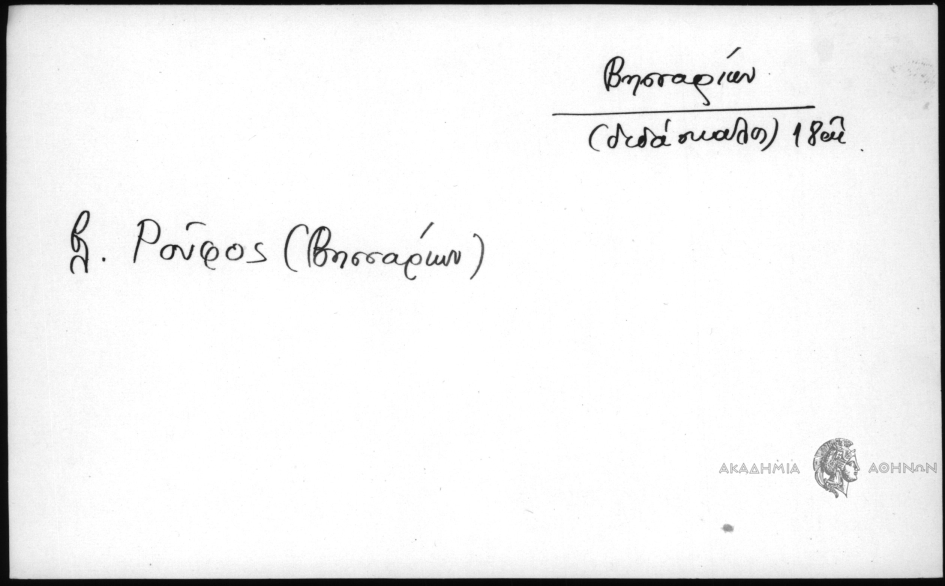 Βησσαρίων
(διδάσκαλος) 18ος αἰ.
βλ. Ροῦφος (Βησσαρίων)
ΑΚΑΔΗΜΙΑ ΑΘΗΝΩΝ